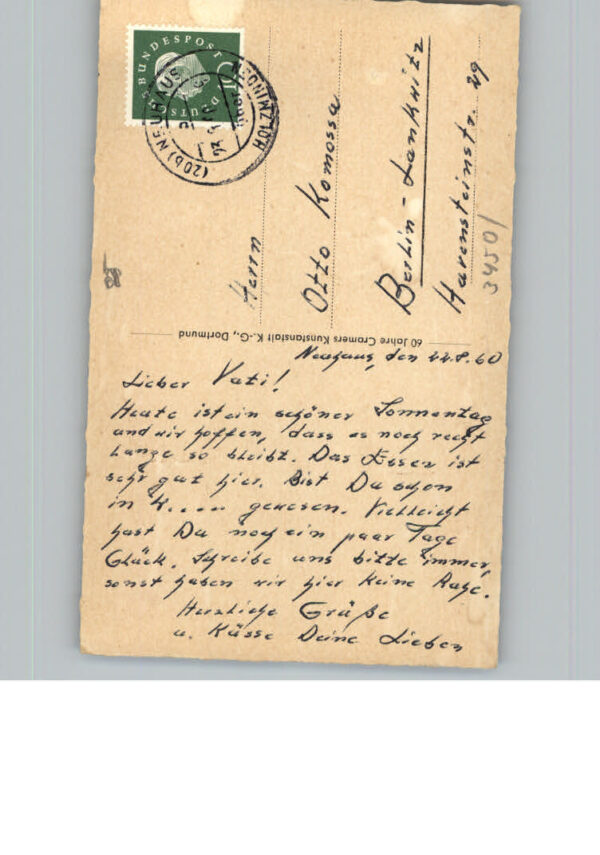 DEUTSCHE BUNDESPOST
10
(20b) NEUHAUS
HOLZMINDEN
Herrn
Otto Komossa
Berlin - Lankwitz
Havensteinstr. 29
34501
60 Jahre Cramers Kunstanstalt K.-G., Dortmund
Neuhaus, den
Lieber Vati!
Heute ist ein schöner Sonnentag
und wir hoffen, dass es noch recht
lange so bleibt. Das Essen ist
sehr gut hier. Bist Du schon
in K.... gewesen. Vielleicht
hast Du noch ein paar Tage
Glück. Schreibe uns bitte immer,
sonst haben wir hier keine Ruhe.
Herzliche Grüße
u. Küsse Deine Lieben